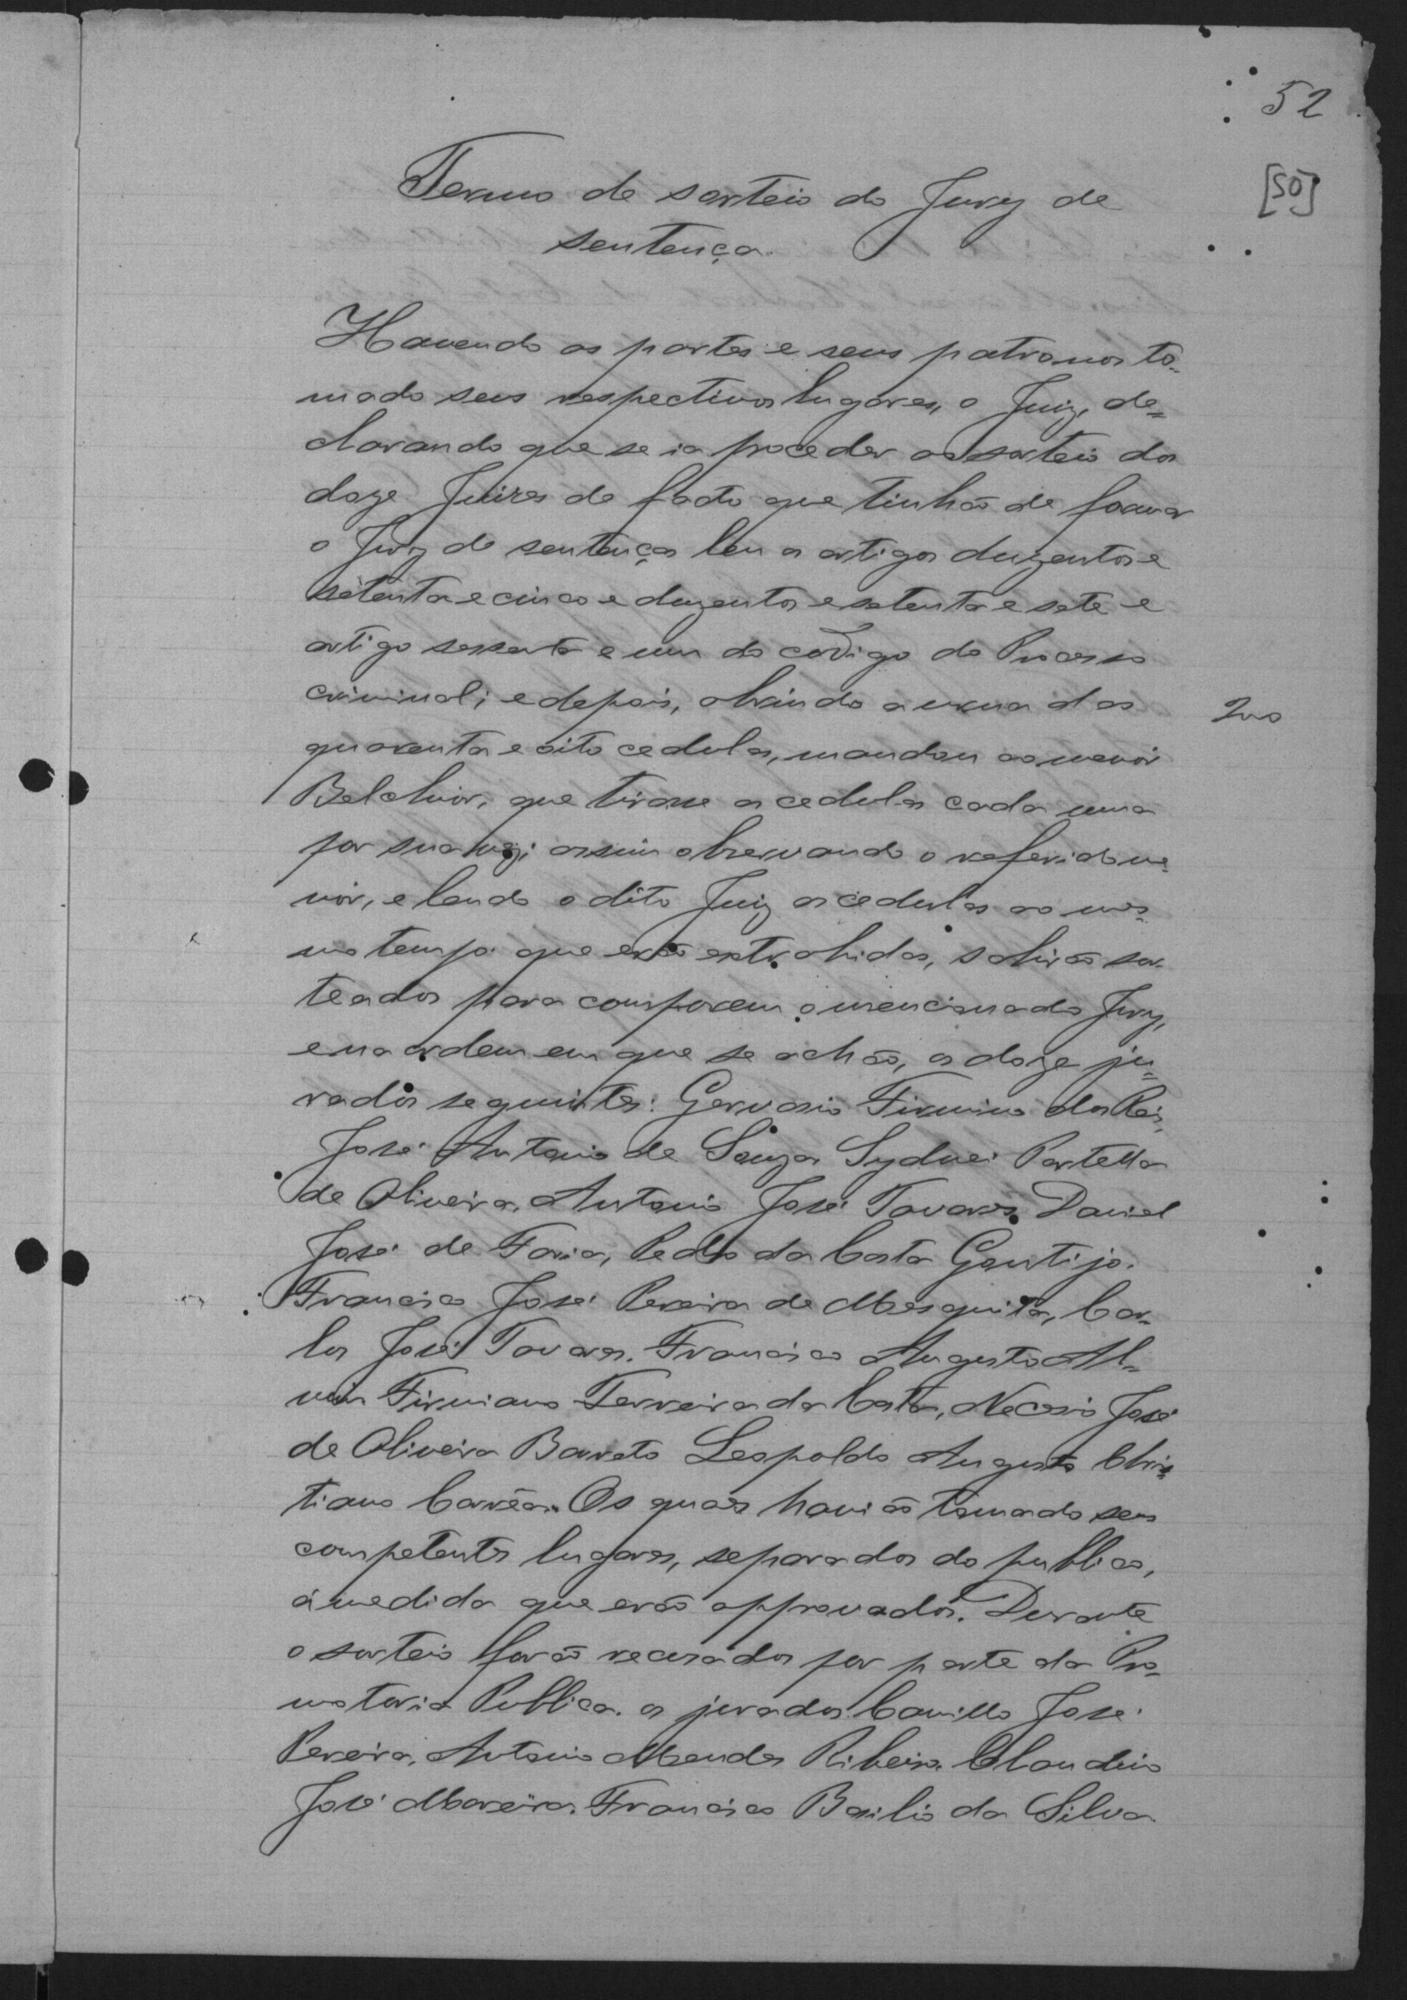 52
[50]
Termo de sorteio do Jury de
sentença.
Havendo as partes e seus patronos to-
mado seus respectivos lugares, o Juiz, de=
clarando que se ia proceder ao sorteio dos
doze Juizes de facto que tinhão de formar
o Jury de sentença leu os artigos duzentos e
setenta e cinco e duzentos e setenta e sete e
artigo sessenta e um do codigo do Processo
criminal; e depois, abrindo a urna das
quarenta e oito cedulas, mandou ao menór
Belchior, que tirasse as cedulas cada uma
por sua vez; assim observando o referido me-
nór, e lendo o dito Juiz as cedulas ao mes-
mo tempo que erão extrahidas, sahirão sor-
teados para comporem o mencionado Jury,
e na ordem em que se achão, os doze ju=
rados seguintes: Gervasio Firmino dos Reis,
José Antonio de Souza Sydnei Portella
de Oliveira, Antonio José Tavares, Daniel
José de Faria, Pedro da Costa Gontijo.
Francisco José Pereira de Mesquita, Car-
los José Tavares. Francisco Augusto Al-
vim Firmiano Ferreira da Costa, Necesio José
de Oliveira Barreto Leopoldo Augusto Chris-
tiano Corrêa. Os quaes havião tomado seus
competentes lugares, separados do publico,
á medida que erão approvados. Durante
o sorteio forão recusados por parte da Pro-
motoria Publica. os jurados Camillo José
Pereira, Antonio Mendes Ribeiro Claudino
José Moreira. Francisco Basilio da Silva